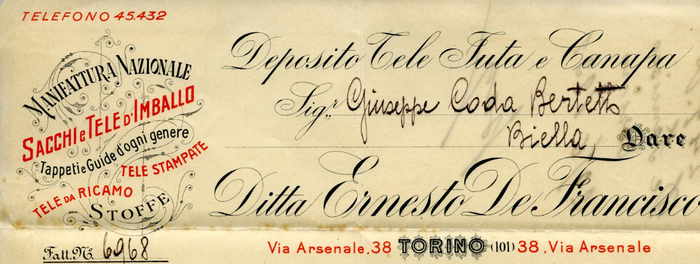 TELEFONO 45.432
MANIFATTURA NAZIONALE
SACCHI e TELE D'IMBALLO
Tappeti e Guide d'ogni genere
TELE STAMPATE
TELE DA RICAMO
STOFFE
Deposito Tele Juta e Canapa
Sigr. Giuseppe Coda Bertetto
Biella, Dare
Ditta Ernesto De Francisco
Fatt. N. 6968
Via Arsenale, 38 TORINO (101) 38, Via Arsenale